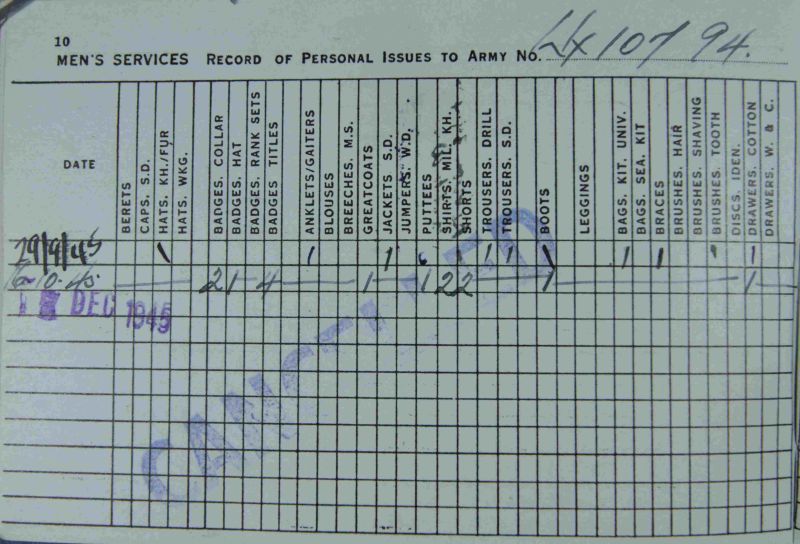 10
MEN'S SERVICES RECORD OF PERSONAL ISSUES TO ARMY No. 10794.
DATE
BERETS
CAPS. S.D.
HATS. KH./FUR
HATS. WKG.
BADGES. COLLAR
BADGES. HAT
BADGES. RANK SETS
BADGES TITLES
ANKLETS/GAITERS
BLOUSES
BREECHES. M.S.
GREATCOATS
JACKETS S.D.
JUMPERS. W.D.
PUTTEES
SHIRTS. MIL. KH.
SHORTS
TROUSERS. DRILL
TROUSERS. S.D.
BOOTS
LEGGINGS
BAGS. KIT. UNIV.
BAGS. SEA. KIT
BRACES
BRUSHES. HAIR
BRUSHES. SHAVING
BRUSHES. TOOTH
DISCS. IDEN.
DRAWERS. COTTON
DRAWERS. W. & C.
29/9/45 1 1 1 1 1 1 1 1 1 1 1 1
10.45 2 1 4 1 1 2 2 1 1
DEC 1945
CANCELLED